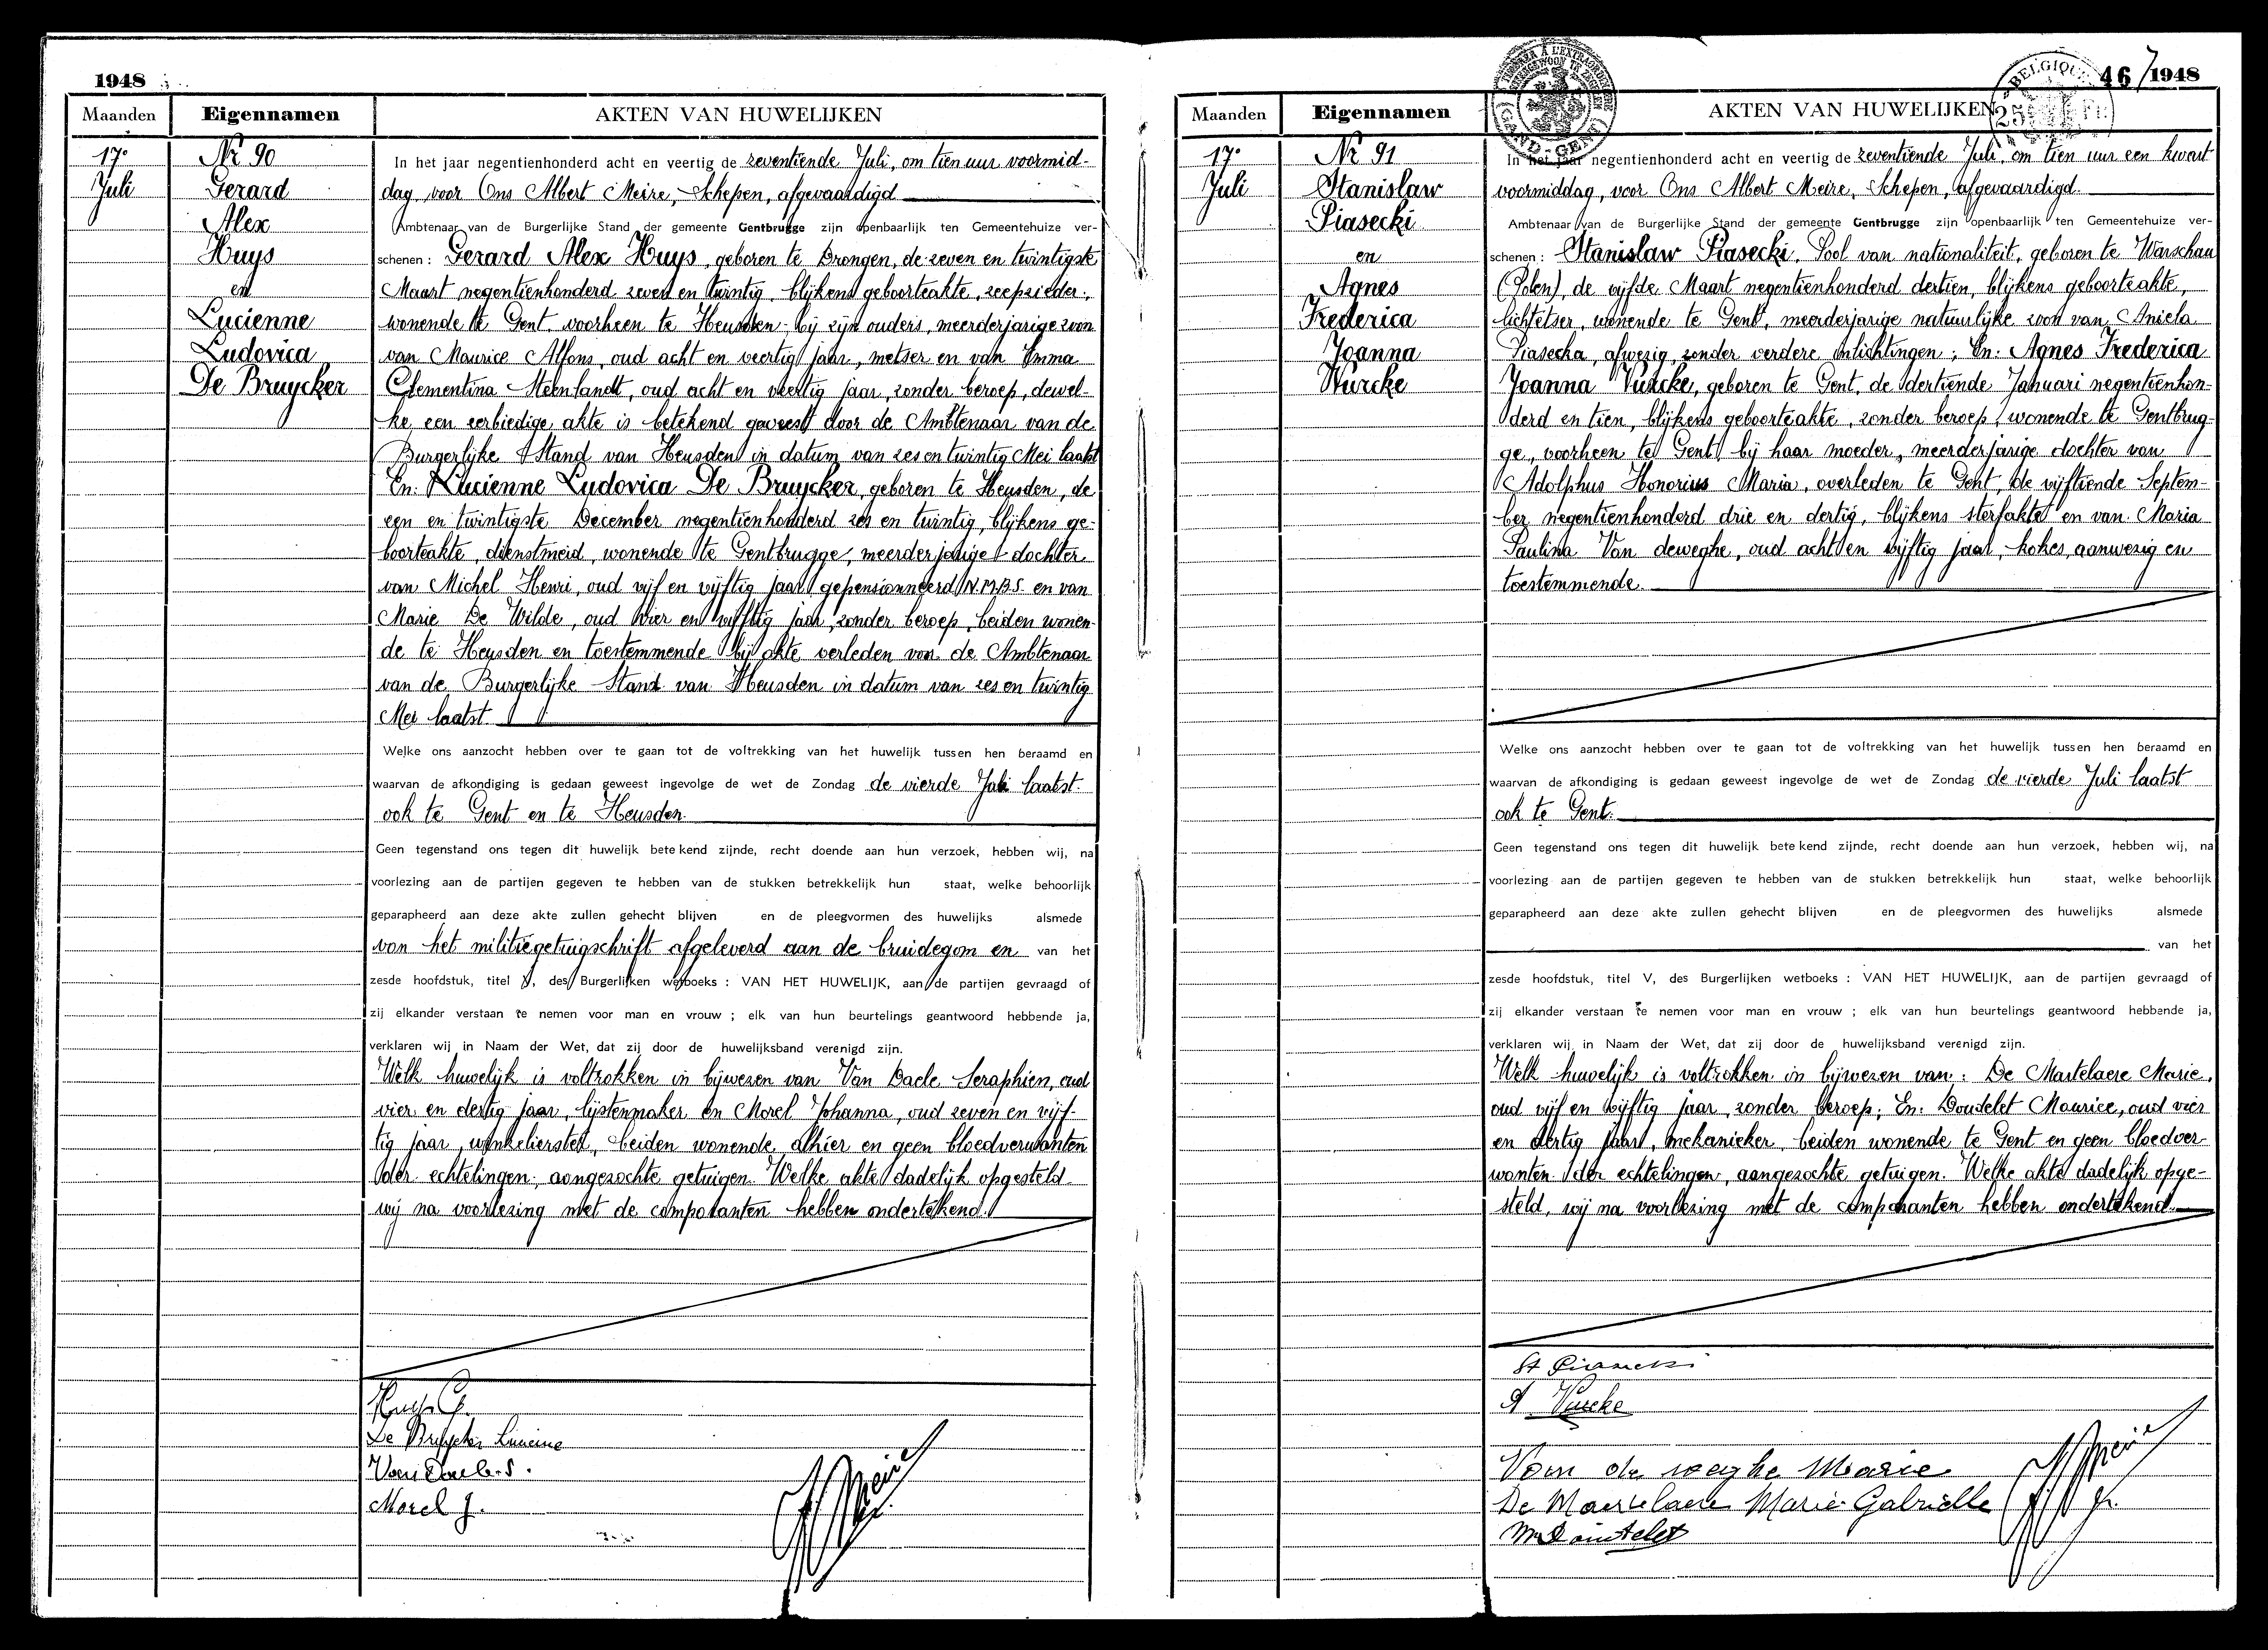 1948
Maanden Eigennamen AKTEN VAN HUWELIJKEN
17e
Juli
Nr 90
Gerard
Alex
Huys
en
Lucienne
Ludovica
De Bruycker
In het jaar negentienhonderd acht en veertig de zeventiende Juli, om tien uur voormid-
dag, voor Ons Albert Meire, Schepen, afgevaardigd
Ambtenaar van de Burgerlijke Stand der gemeente Gentbrugge zijn openbaarlijk ten Gemeentehuize ver-
schenen : Gerard Alex Huys, geboren te Drongen, de zeven en twintigste
Maart negentienhonderd zeven en twintig, blijkens geboorteakte, zeepzieder,
wonende te Gent, voorheen te Heusden bij zijn ouders, meerderjarige zoon
van Maurice Alfons, oud acht en veertig jaar, metser en van Emma
Clementina Steenlandt, oud acht en veertig jaar, zonder beroep, dewel-
ke een eerbiedige akte is betekend geweest door de Ambtenaar van de
Burgerlijke Stand van Heusden in datum van zes en twintig Mei laatst
En: Lucienne Ludovica De Bruycker, geboren te Heusden, de
een en twintigste December negentienhonderd zes en twintig, blijkens ge-
boorteakte, dienstmeid, wonende te Gentbrugge, meerderjarige dochter
van Michel Henri, oud vijf en vijftig jaar, gepensionneerd N.M.B.S. en van
Marie De Wilde, oud vier en vijftig jaar, zonder beroep, beiden wonen-
de te Heusden en toestemmende bij akte verleden voor de Ambtenaar
van de Burgerlijke Stand van Heusden in datum van zes en twintig
Mei laatst.
Welke ons aanzocht hebben over te gaan tot de voltrekking van het huwelijk tussen hen beraamd en
waarvan de afkondiging is gedaan geweest ingevolge de wet de Zondag de vierde Juli laatst
ook te Gent en te Heusden.
Geen tegenstand ons tegen dit huwelijk betekend zijnde, recht doende aan hun verzoek, hebben wij, na
voorlezing aan de partijen gegeven te hebben van de stukken betrekkelijk hun staat, welke behoorlijk
geparapheerd aan deze akte zullen gehecht blijven en de pleegvormen des huwelijks alsmede
van het militiegetuigschrift afgeleverd aan de bruidegom en van het
zesde hoofdstuk, titel V, des Burgerlijken wetboeks : VAN HET HUWELIJK, aan de partijen gevraagd of
zij elkander verstaan te nemen voor man en vrouw ; elk van hun beurtelings geantwoord hebbende ja,
verklaren wij in Naam der Wet, dat zij door de huwelijksband verenigd zijn.
Welk huwelijk is voltrokken in bijwezen van Van Daele Seraphien, oud
vier en dertig jaar, lijstenmaker en Morel Johanna, oud zeven en vijf-
tig jaar, winkelierster, beiden wonende alhier en geen bloedverwanten
der echtelingen, aangezochte getuigen. Welke akte dadelijk opgesteld
wij na voorlezing met de comparanten hebben ondertekend.
Huys G.
De Bruycker Lucienne
Van Daele S.
Morel J.
A Meire
46 1948
Maanden Eigennamen AKTEN VAN HUWELIJKEN
GAND - GENT
BELGIQUE
25 Fr.
17e
Juli
Nr 91
Stanislaw
Piasecki
en
Agnes
Frederica
Joanna
Vurcke
In het jaar negentienhonderd acht en veertig de zeventiende Juli, om tien uur een kwart
voormiddag, voor Ons Albert Meire, Schepen, afgevaardigd
Ambtenaar van de Burgerlijke Stand der gemeente Gentbrugge zijn openbaarlijk ten Gemeentehuize ver-
schenen : Stanislaw Piasecki, Pool van nationaliteit, geboren te Warschau
(Polen), de vijfde Maart negentienhonderd dertien, blijkens geboorteakte,
lichtetser, wonende te Gent, meerderjarige natuurlijke zoon van Aniela
Piasecka, afwezig, zonder verdere inlichtingen ; En: Agnes Frederica
Joanna Vurcke, geboren te Gent, de dertiende Januari negentienhon-
derd en tien, blijkens geboorteakte, zonder beroep, wonende te Gentbrug-
ge, voorheen te Gent bij haar moeder, meerderjarige dochter van
Adolphus Honorius Maria, overleden te Gent, de vijftiende Septem-
ber negentienhonderd drie en dertig, blijkens sterfakte en van Maria
Paulina Van deweghe, oud acht en vijftig jaar, kokes, aanwezig en
toestemmende.
Welke ons aanzocht hebben over te gaan tot de voltrekking van het huwelijk tussen hen beraamd en
waarvan de afkondiging is gedaan geweest ingevolge de wet de Zondag de vierde Juli laatst
ook te Gent.
Geen tegenstand ons tegen dit huwelijk betekend zijnde, recht doende aan hun verzoek, hebben wij, na
voorlezing aan de partijen gegeven te hebben van de stukken betrekkelijk hun staat, welke behoorlijk
geparapheerd aan deze akte zullen gehecht blijven en de pleegvormen des huwelijks alsmede
van het
zesde hoofdstuk, titel V, des Burgerlijken wetboeks : VAN HET HUWELIJK, aan de partijen gevraagd of
zij elkander verstaan te nemen voor man en vrouw ; elk van hun beurtelings geantwoord hebbende ja,
verklaren wij in Naam der Wet, dat zij door de huwelijksband verenigd zijn.
Welk huwelijk is voltrokken in bijwezen van : De Martelaere Marie,
oud vijf en vijftig jaar, zonder beroep; En: Doudelet Maurice, oud vier
en dertig jaar, mekanieker, beiden wonende te Gent en geen bloedver-
wanten der echtelingen, aangezochte getuigen. Welke akte dadelijk opge-
steld, wij na voorlezing met de comparanten hebben ondertekend.
St Piasecki
A Vurcke
Van de weghe Marie
De Martelaere Marie Gabrielle
M Doudelet
A Meire